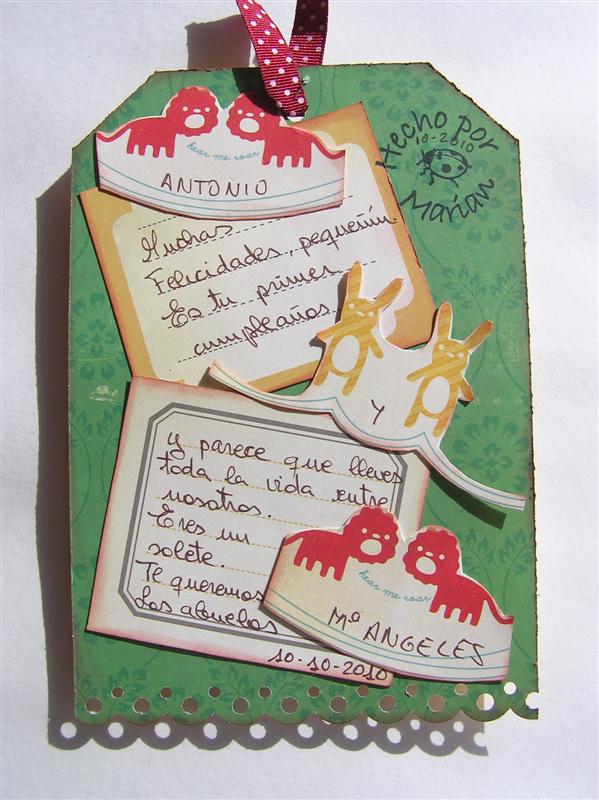 Hecho por
10-2010
Marian
hear me roar
ANTONIO
Muchas
Felicidades, pequeñín.
Es tu primer
cumpleaños
Y
y parece que lleves
toda la vida entre
nosotros.
Eres un
solete.
Te queremos
Los abuelos
hear me roar
Mª ANGELES
10-10-2010